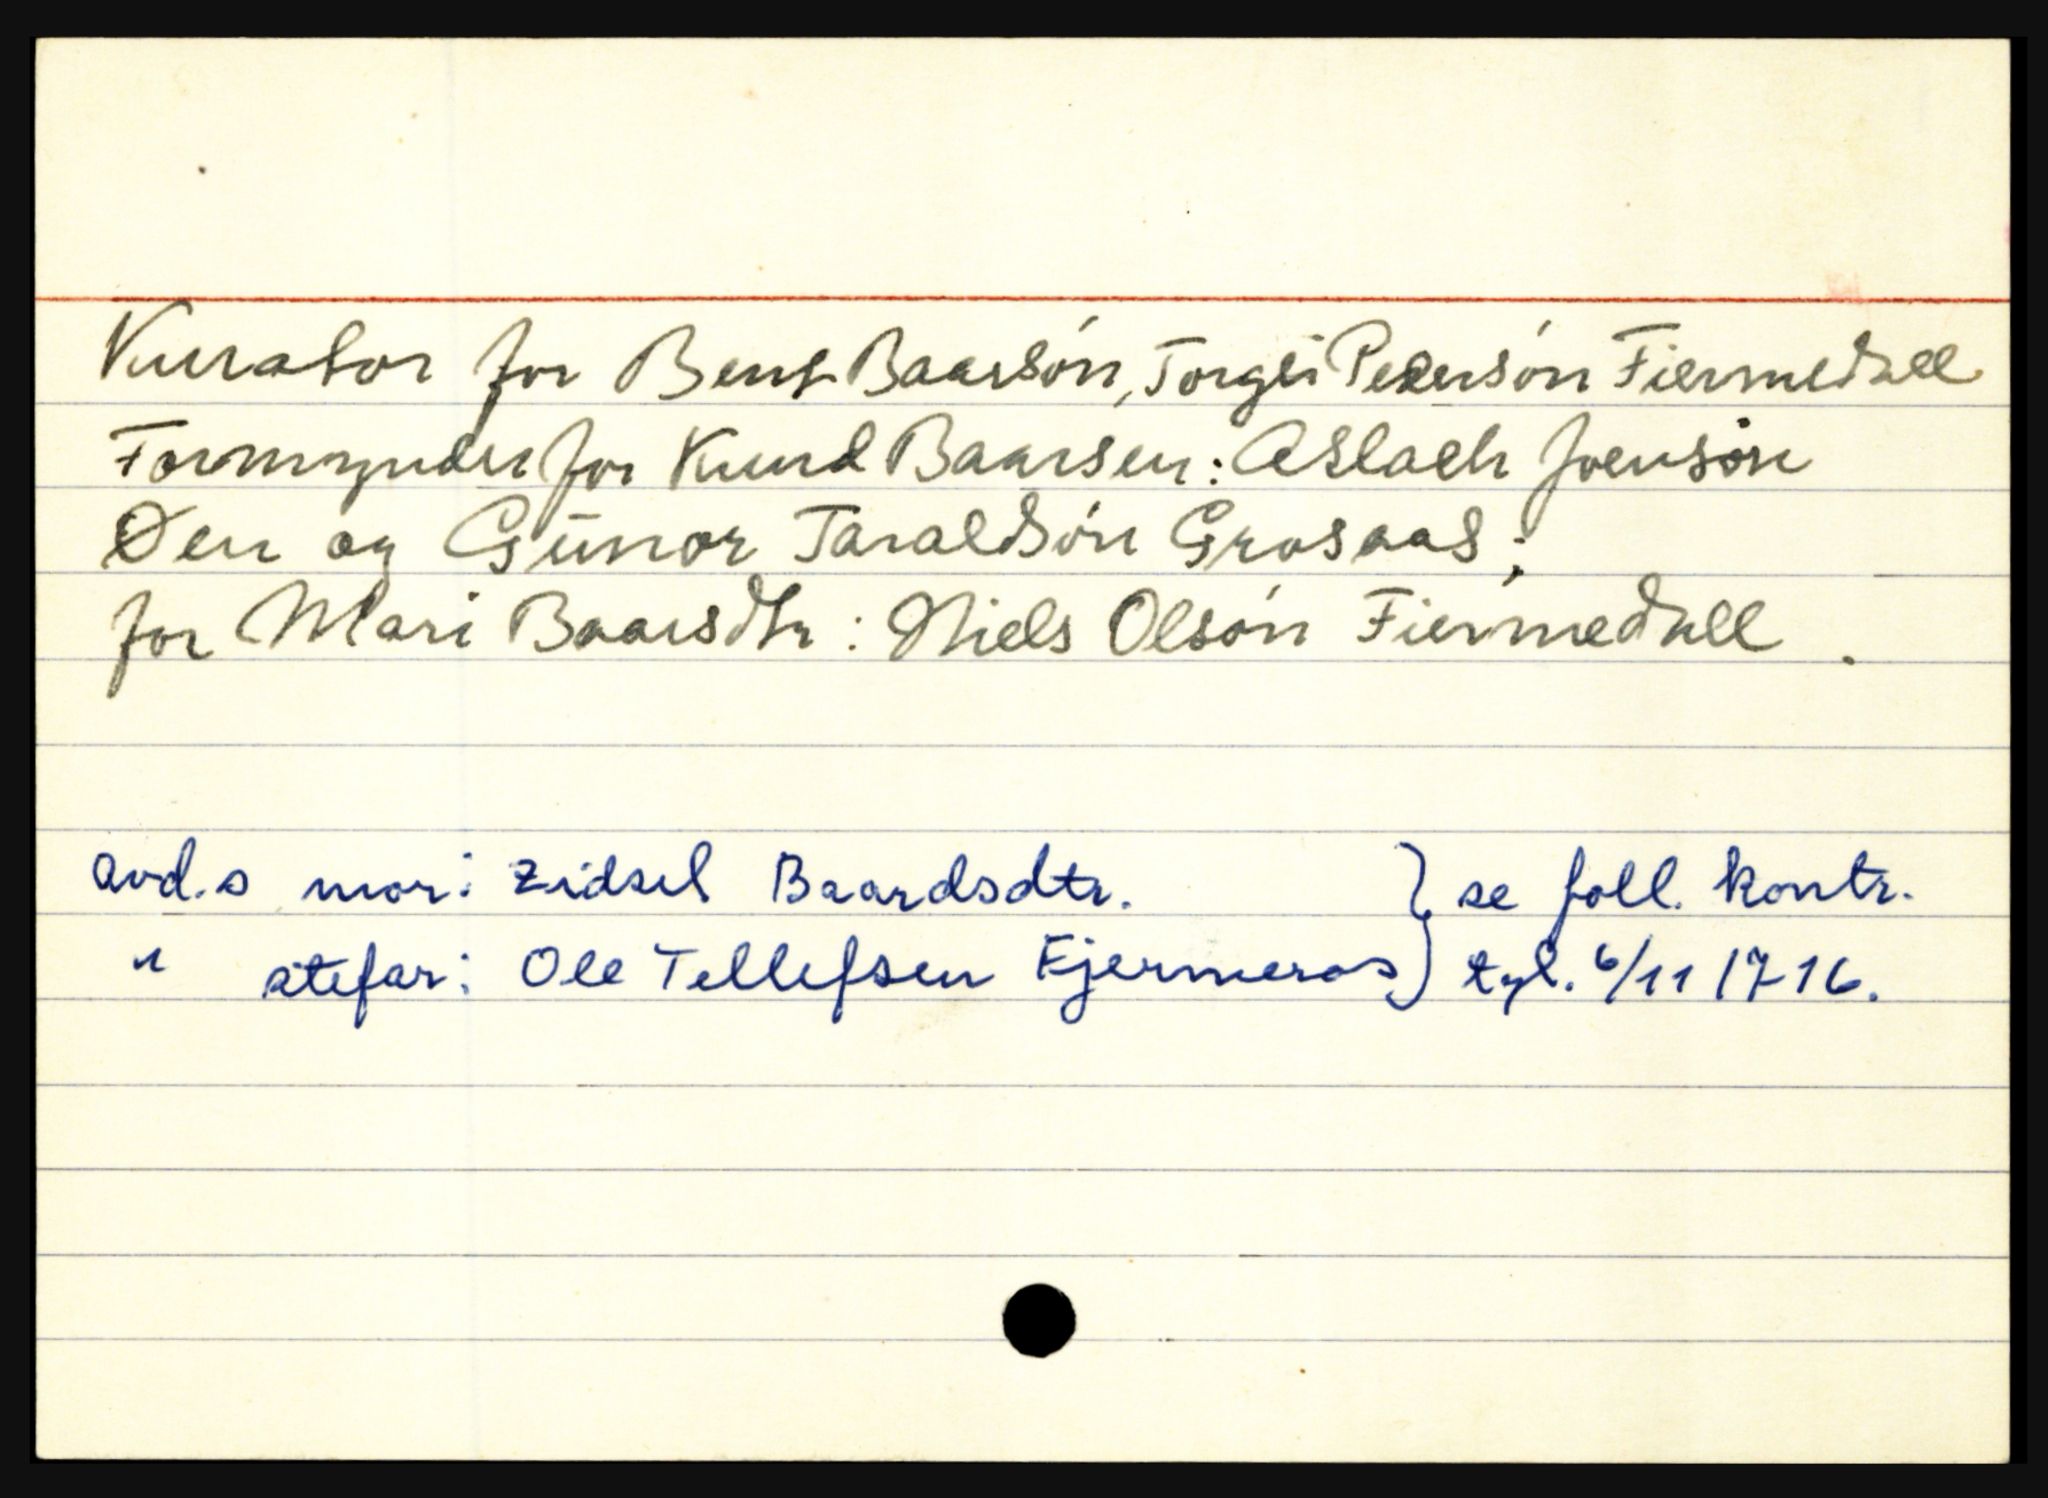 Kurator for Bent Baarsøn, Torgei Pedersøn Fiermedall
Formynder for Knud Baarsen: Aslach Joensøn
Øen og Gŭnor Taraldsøn Grosaas;
for Mari Baarsdtr: Niels Olsøn Fiermedall.
avd.s mor: Zidsel Baardsdtr. } se foll. kontr.
" stefar: Ole Tellefsen Fjermeros } tgl. 6/11 1716.